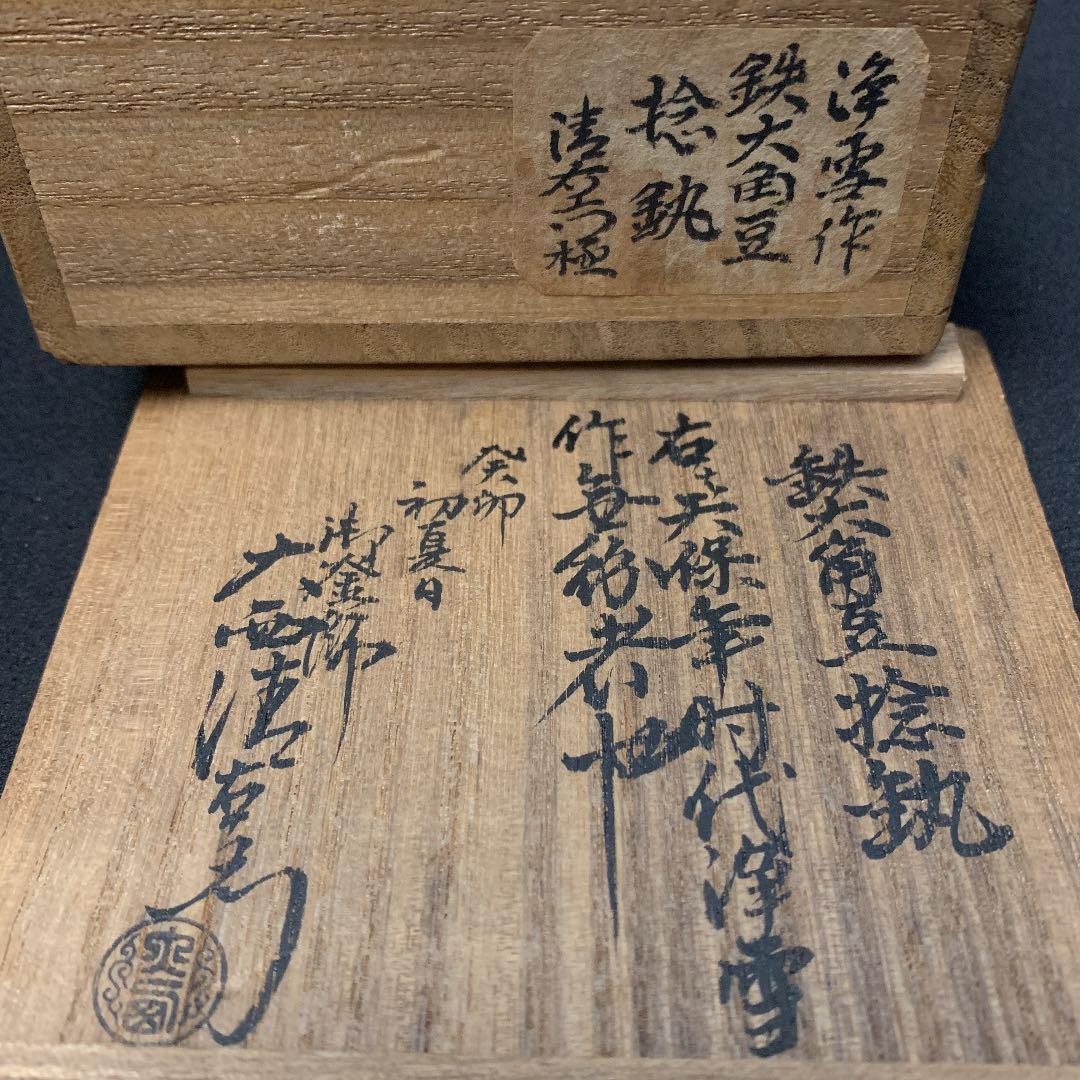 浄雪作
鉄大角豆
捻釻
清右エ門極
鉄大角豆捻釻
右ハ天保年時代浄雪
作無紛者也
癸卯
初夏日
御釜師
大西清右衛門